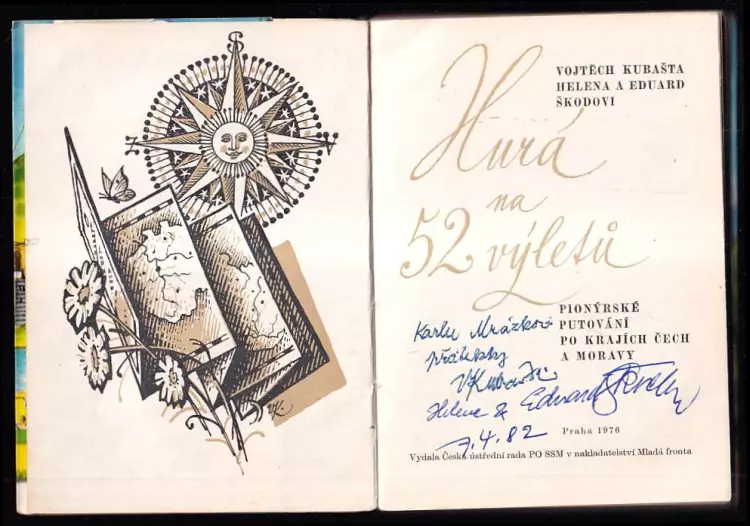 S
V
Z
VK.
VOJTĚCH KUBAŠTA
HELENA A EDUARD
ŠKODOVI
Hurá
na
52 výletů
PIONÝRSKÉ
PUTOVÁNÍ
PO KRAJÍCH ČECH
A MORAVY
Karlu Mrázkovi
přátelsky
VKubašta
Helena & Eduard Škodovi
7.4.82
Praha 1976
Vydala Česká ústřední rada PO SSM v nakladatelství Mladá fronta